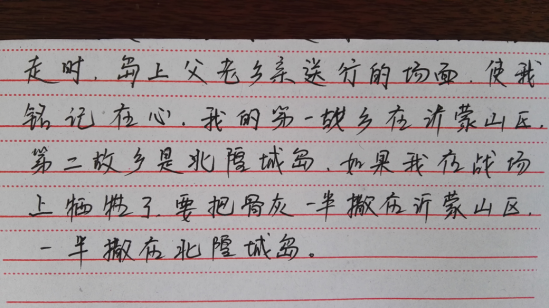 走时，岛上父老乡亲送行的场面，使我
铭记在心，我的第一故乡在沂蒙山区，
第二故乡是北隍城岛，如果我在战场
上牺牲了，要把骨灰一半撒在沂蒙山区，
一半撒在北隍城岛。